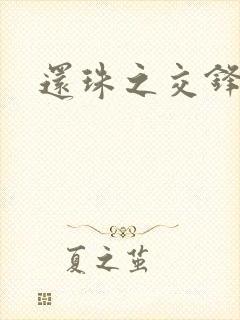 還珠之交鋒
夏之茧